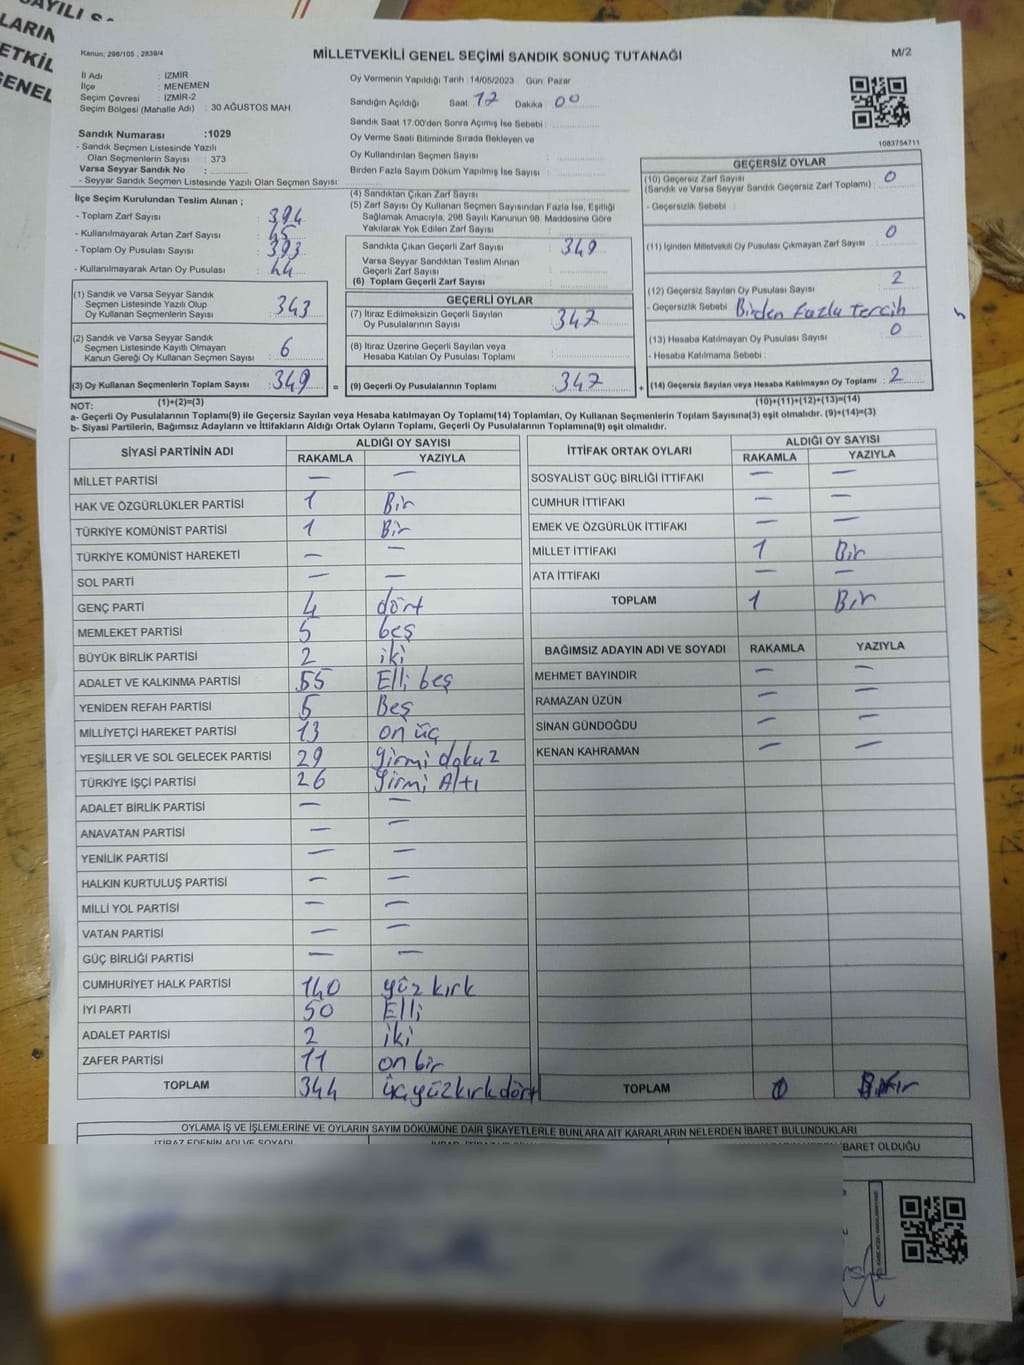 SAYILI
LARIN
ETKİL
GENEL
Kanun: 298/105 , 2839/4
MİLLETVEKİLİ GENEL SEÇİMİ SANDIK SONUÇ TUTANAĞI
M/2
İl Adı : İZMİR
İlçe : MENEMEN
Seçim Çevresi : İZMİR-2
Seçim Bölgesi (Mahalle Adı) : 30 AĞUSTOS MAH.
Oy Vermenin Yapıldığı Tarih :14/05/2023 Gün: Pazar
Sandığın Açıldığı Saat 17 Dakika 00
Sandık Saat 17:00'den Sonra Açımış İse Sebebi :
Oy Verme Saati Bitiminde Sırada Bekleyen ve
Oy Kullandırılan Seçmen Sayısı :
Birden Fazla Sayım Döküm Yapılmış İse Sayısı :
1083754711
Sandık Numarası :1029
- Sandık Seçmen Listesinde Yazılı
Olan Seçmenlerin Sayısı : 373
Varsa Seyyar Sandık No :
- Seyyar Sandık Seçmen Listesinde Yazılı Olan Seçmen Sayısı:
İlçe Seçim Kurulundan Teslim Alınan ;
- Toplam Zarf Sayısı : 394
- Kullanılmayarak Artan Zarf Sayısı : 45
- Toplam Oy Pusulası Sayısı : 393
- Kullanılmayarak Artan Oy Pusulası : 44
(1) Sandık ve Varsa Seyyar Sandık
Seçmen Listesinde Yazılı Olup
Oy Kullanan Seçmenlerin Sayısı : 343
(2) Sandık ve Varsa Seyyar Sandık
Seçmen Listesinde Kayıtlı Olmayan
Kanun Gereği Oy Kullanan Seçmen Sayısı : 6
(3) Oy Kullanan Seçmenlerin Toplam Sayısı : 349
(1)+(2)=(3)
(4) Sandıktan Çıkan Zarf Sayısı :
(5) Zarf Sayısı Oy Kullanan Seçmen Sayısından Fazla İse, Eşitliği
Sağlamak Amacıyla, 298 Sayılı Kanunun 98. Maddesine Göre
Yakılarak Yok Edilen Zarf Sayısı :
Sandıkta Çıkan Geçerli Zarf Sayısı : 349
Varsa Seyyar Sandıktan Teslim Alınan
Geçerli Zarf Sayısı :
(6) Toplam Geçerli Zarf Sayısı :
GEÇERLİ OYLAR
(7) İtiraz Edilmeksizin Geçerli Sayılan
Oy Pusulalarının Sayısı : 347
(8) İtiraz Üzerine Geçerli Sayılan veya
Hesaba Katılan Oy Pusulası Toplamı :
= (9) Geçerli Oy Pusulalarının Toplamı : 347
GEÇERSİZ OYLAR
(10) Geçersiz Zarf Sayısı
(Sandık ve Varsa Seyyar Sandık Geçersiz Zarf Toplamı) : 0
- Geçersizlik Sebebi :
(11) İçinden Milletvekili Oy Pusulası Çıkmayan Zarf Sayısı : 0
(12) Geçersiz Sayılan Oy Pusulası Sayısı : 2
- Geçersizlik Sebebi : Birden Fazla tercih
(13) Hesaba Katılmayan Oy Pusulası Sayısı : 0
- Hesaba Katılmama Sebebi :
+ (14) Geçersiz Sayılan veya Hesaba Katılmayan Oy Toplamı : 2
(10)+(11)+(12)+(13)=(14)
NOT:
a- Geçerli Oy Pusulalarının Toplamı(9) ile Geçersiz Sayılan veya Hesaba katılmayan Oy Toplamı(14) Toplamları, Oy Kullanan Seçmenlerin Toplam Sayısına(3) eşit olmalıdır. (9)+(14)=(3)
b- Siyasi Partilerin, Bağımsız Adayların ve İttifakların Aldığı Ortak Oyların Toplamı, Geçerli Oy Pusulalarının Toplamına(9) eşit olmalıdır.
SİYASİ PARTİNİN ADI ALDIĞI OY SAYISI
RAKAMLA YAZIYLA
MİLLET PARTİSİ — —
HAK VE ÖZGÜRLÜKLER PARTİSİ 1 Bir
TÜRKİYE KOMÜNİST PARTİSİ 1 Bir
TÜRKİYE KOMÜNİST HAREKETİ — —
SOL PARTİ — —
GENÇ PARTİ 4 dört
MEMLEKET PARTİSİ 5 beş
BÜYÜK BİRLİK PARTİSİ 2 iki
ADALET VE KALKINMA PARTİSİ 55 Elli beş
YENİDEN REFAH PARTİSİ 5 Beş
MİLLİYETÇİ HAREKET PARTİSİ 13 on üç
YEŞİLLER VE SOL GELECEK PARTİSİ 29 yirmi dokuz
TÜRKİYE İŞÇİ PARTİSİ 26 yirmi Altı
ADALET BİRLİK PARTİSİ — —
ANAVATAN PARTİSİ — —
YENİLİK PARTİSİ — —
HALKIN KURTULUŞ PARTİSİ — —
MİLLİ YOL PARTİSİ — —
VATAN PARTİSİ — —
GÜÇ BİRLİĞİ PARTİSİ — —
CUMHURİYET HALK PARTİSİ 140 yüz kırk
İYİ PARTİ 50 Elli
ADALET PARTİSİ 2 iki
ZAFER PARTİSİ 11 on bir
TOPLAM 344 üç yüz kırk dört
İTTİFAK ORTAK OYLARI ALDIĞI OY SAYISI
RAKAMLA YAZIYLA
SOSYALİST GÜÇ BİRLİĞİ İTTİFAKI — —
CUMHUR İTTİFAKI — —
EMEK VE ÖZGÜRLÜK İTTİFAKI — —
MİLLET İTTİFAKI 1 Bir
ATA İTTİFAKI — —
TOPLAM 1 Bir
BAĞIMSIZ ADAYIN ADI VE SOYADI RAKAMLA YAZIYLA
MEHMET BAYINDIR — —
RAMAZAN ÜZÜN — —
SİNAN GÜNDOĞDU — —
KENAN KAHRAMAN — —
TOPLAM
OYLAMA İŞ VE İŞLEMLERİNE VE OYLARIN SAYIM DÖKÜMÜNE DAİR ŞİKAYETLERLE BUNLARA AİT KARARLARIN NELERDEN İBARET BULUNDUKLARI
İTİRAZ EDENİN ADI VE SOYADI
İBARET OLDUĞU